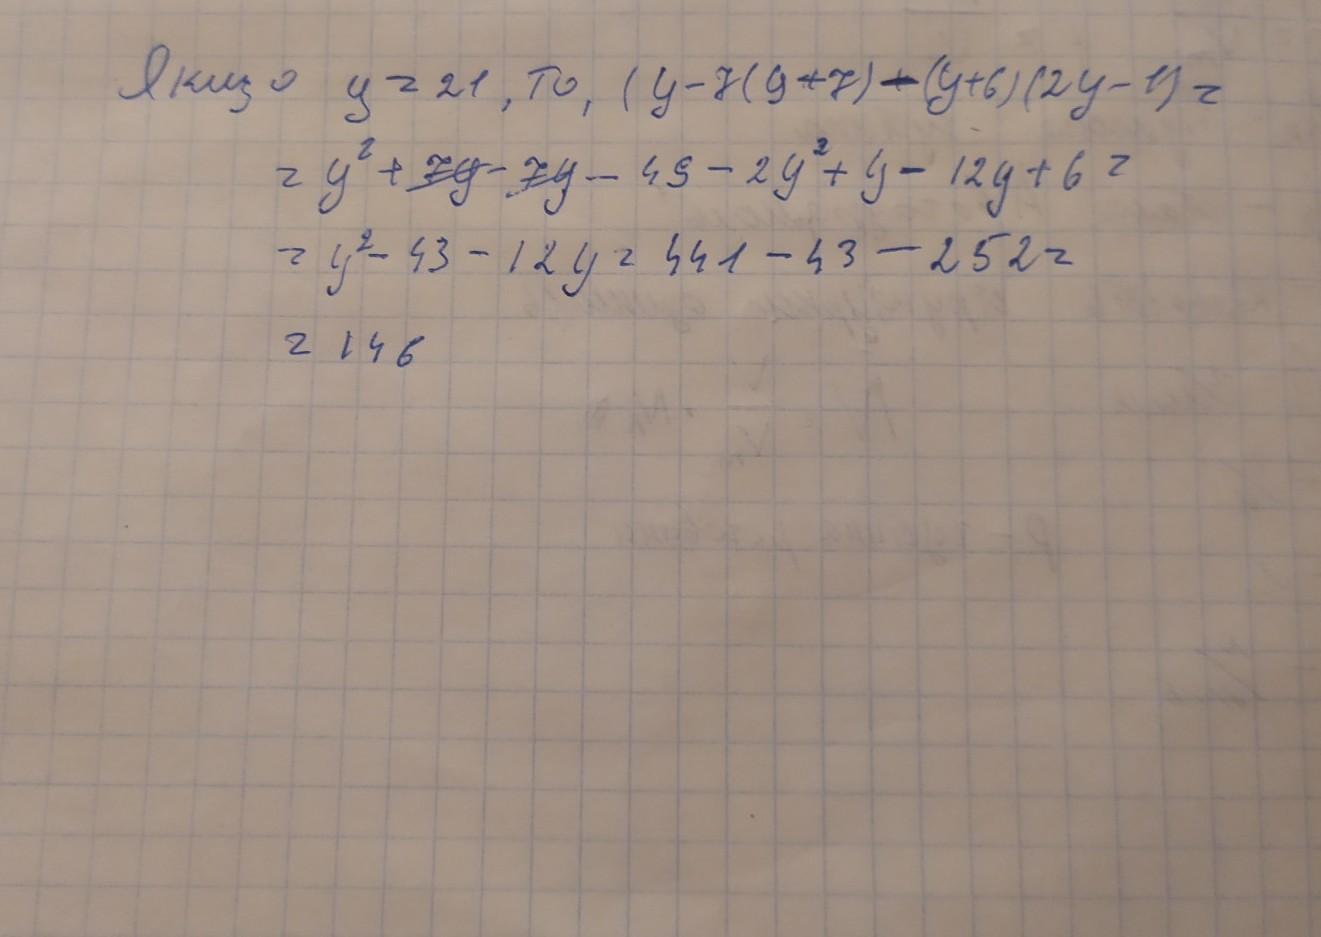 Якщо y = 21, то, (y-7(y+7) - (y+6)(2y-1) =
= y² + 7y - 7y - 49 - 2y² + y - 12y + 6 =
= y² - 43 - 12y = 441 - 43 - 252 =
= 146